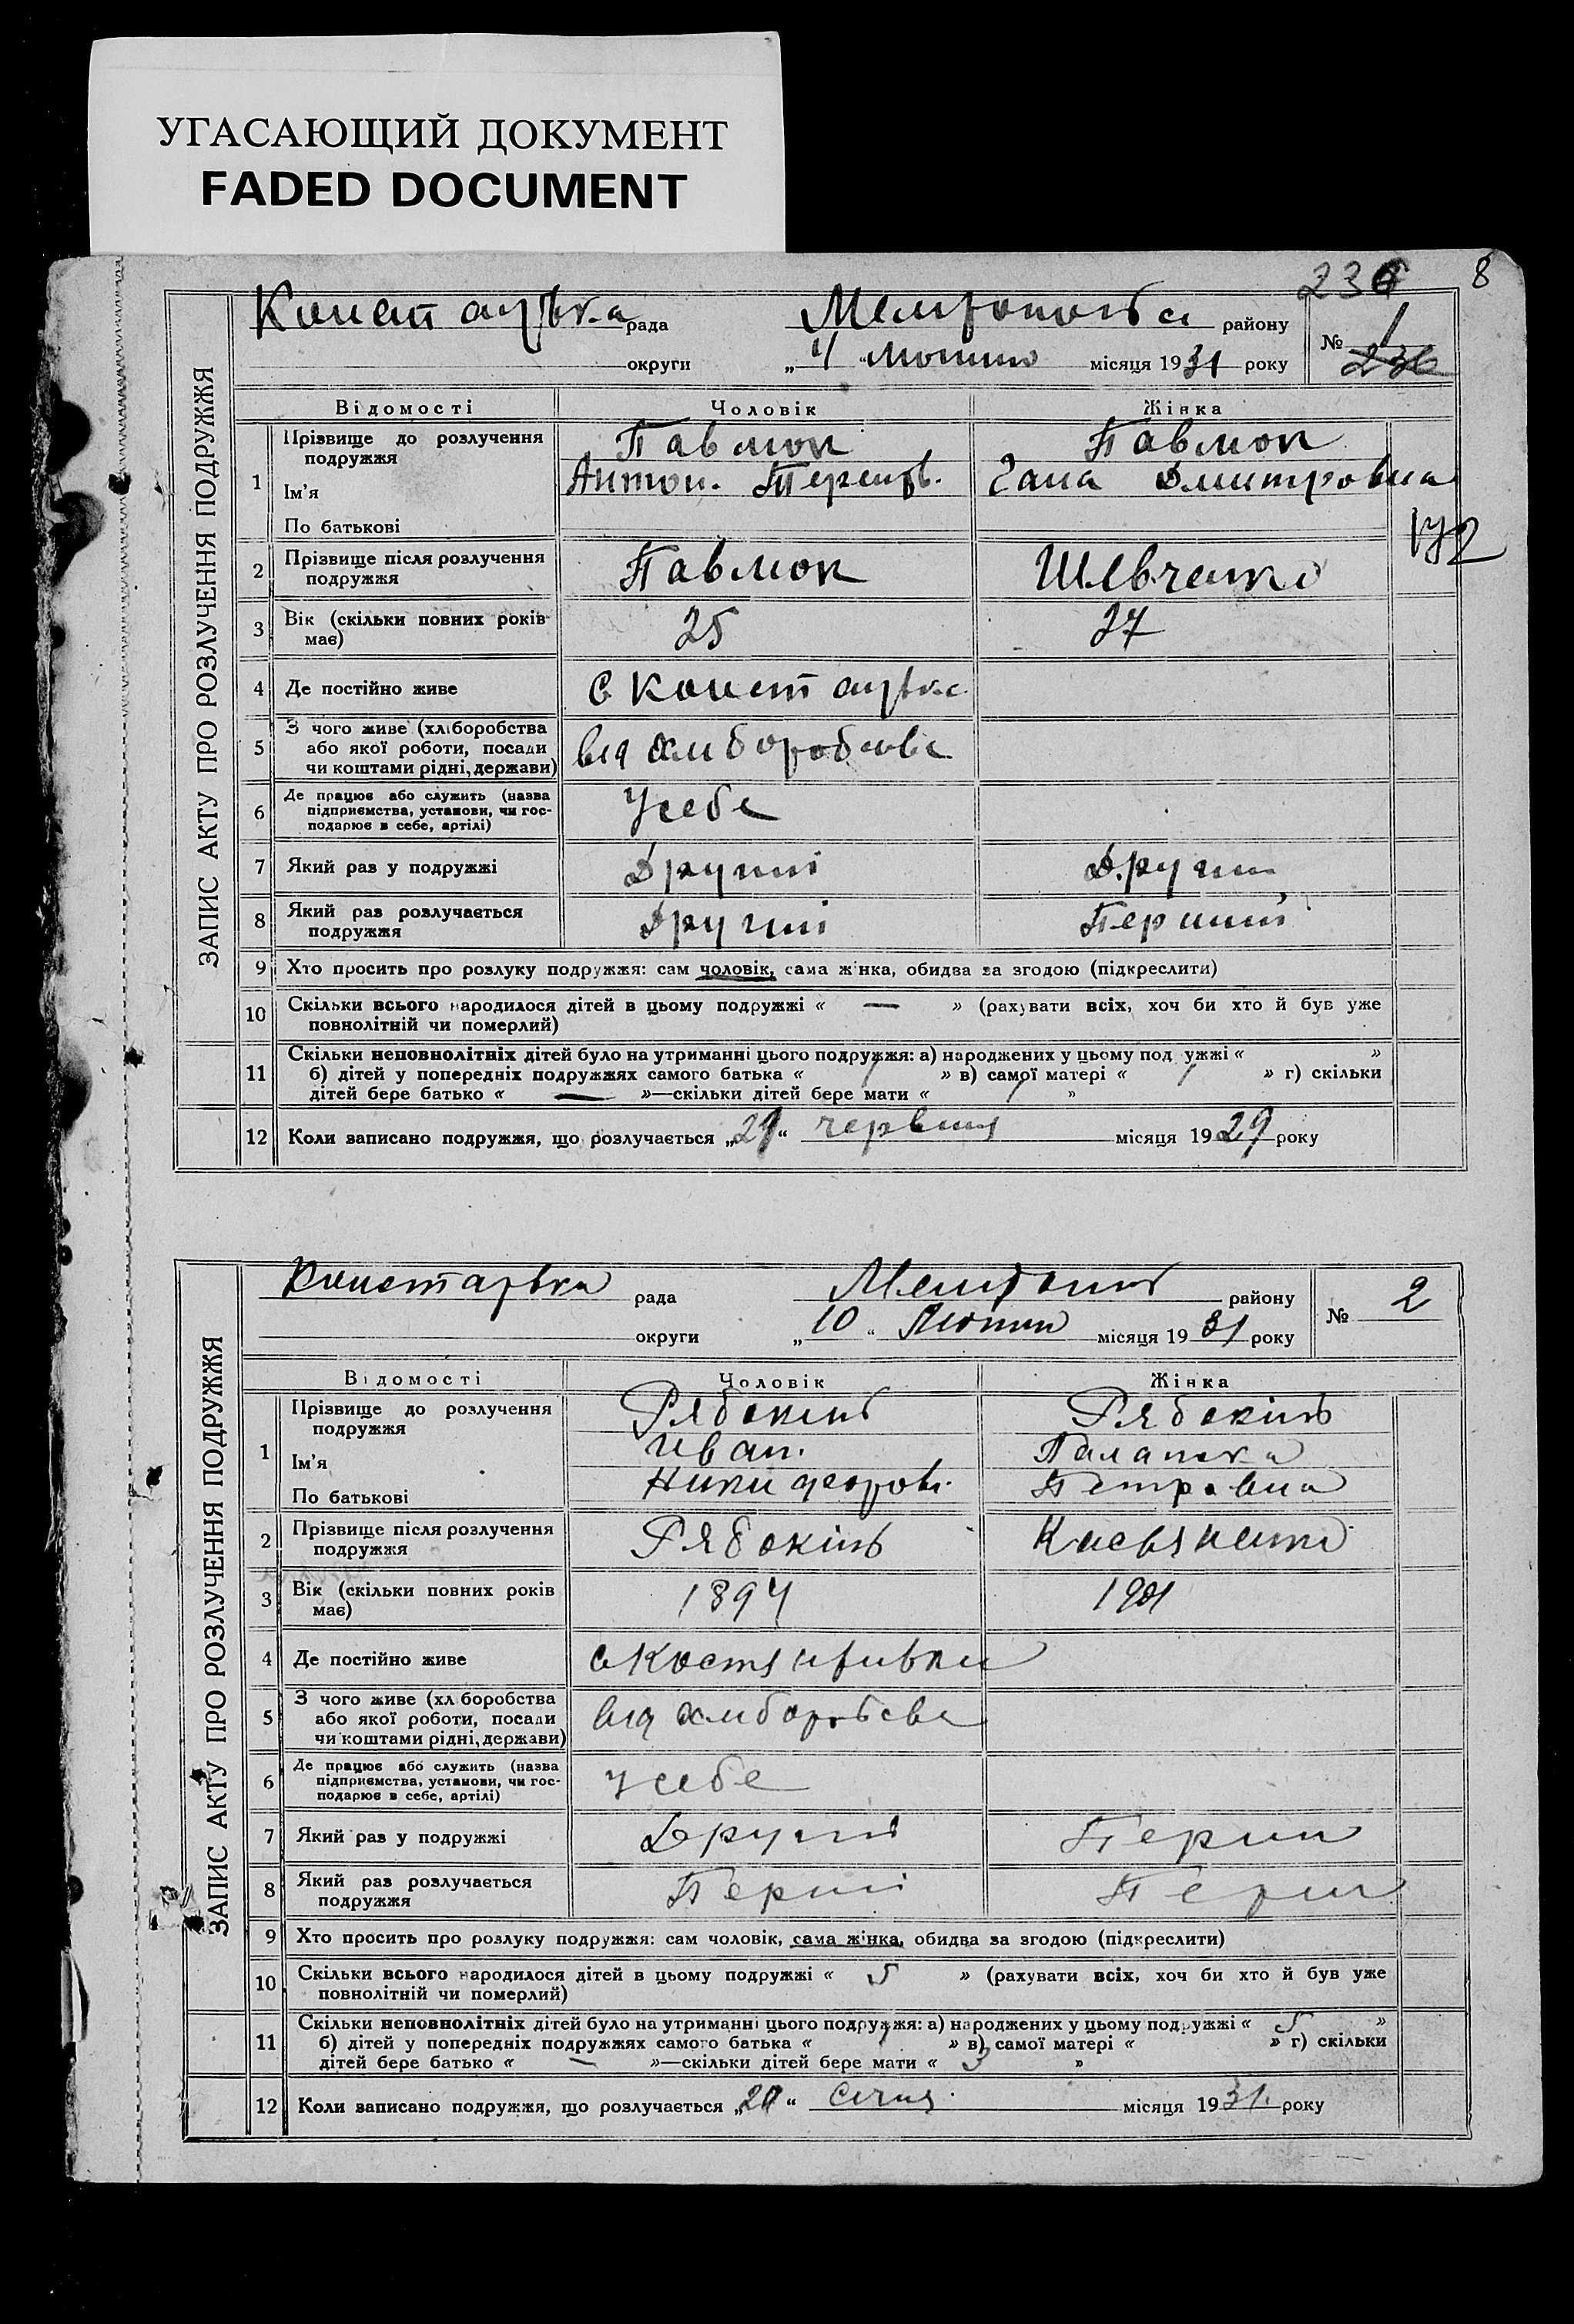 УГАСАЮЩИЙ ДОКУМЕНТ
FADED DOCUMENT
236 8
ЗАПИС АКТУ ПРО РОЗЛУЧЕННЯ ПОДРУЖЖЯ
рада району
№ 1
236
округи „4“ місяця 1931 року
Відомості Чоловік Жінка
1 Прізвище до розлучення подружжя Павлюк Павлюк
Ім'я Антон. Гана Дмитровна
По батькові
172
2 Прізвище після розлучення подружжя Павлюк Шевченко
3 Вік (скільки повних років має) 25 27
4 Де постійно живе с
5 З чого живе (хліборобства
або якої роботи, посади
чи коштами рідні, держави)
від хліборобсва
6 Де працює або служить (назва
підприємства, установи, чи гос-
подарює в себе, артілі)
у себе
7 Який раз у подружжі Другий Другий
8 Який раз розлучається
подружжя
Другий Перший
9 Хто просить про розлуку подружжя: сам чоловік, сама жінка, обидва за згодою (підкреслити)
10 Скільки всього народилося дітей в цьому подружжі « — » (рахувати всіх, хоч би хто й був уже
повнолітній чи померлий)
11 Скільки неповнолітніх дітей було на утриманні цього подружжя: а) народжених у цьому подружжі « »
б) дітей у попередніх подружжях самого батька « » в) самої матері « » г) скільки
дітей бере батько « — »—скільки дітей бере мати « »
12 Коли записано подружжя, що розлучається „29“ червня місяця 1929 року
ЗАПИС АКТУ ПРО РОЗЛУЧЕННЯ ПОДРУЖЖЯ
рада району
№ 2
округи „10“ місяця 1931 року
Відомості Чоловік Жінка
1 Прізвище до розлучення
подружжя
Рябокінь Рябокінь
Ім'я Иван.
По батькові Никифоров. Петровна
2 Прізвище після розлучення
подружжя
Рябокінь
3 Вік (скільки повних років
має)
1894 1901
4 Де постійно живе с
5 З чого живе (хліборобства
або якої роботи, посади
чи коштами рідні, держави)
від хліборобсва
6 Де працює або служить (назва
підприємства, установи, чи гос-
подарює в себе, артілі)
у себе
7 Який раз у подружжі Другий Перши
8 Який раз розлучається
подружжя
9 Хто просить про розлуку подружжя: сам чоловік, сама жінка, обидва за згодою (підкреслити)
10 Скільки всього народилося дітей в цьому подружжі « 5 » (рахувати всіх, хоч би хто й був уже
повнолітній чи померлий)
11 Скільки неповнолітніх дітей було на утриманні цього подружжя: а) народжених у цьому подружжі « 5 »
б) дітей у попередніх подружжях самого батька « » в) самої матері « » г) скільки
дітей бере батько « — »—скільки дітей бере мати « 3 »
12 Коли записано подружжя, що розлучається „20“ Січня місяця 1931. року